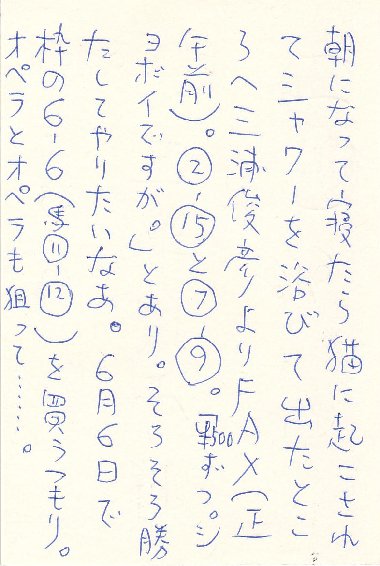 朝になって寝たら猫に起こされ
てシャワーを浴びて出たとこ
ろへ三浦俊彦よりFAX(正
午前)。②-⑮と⑦-⑨。¥500ずつ。シ
ョボイですが。」とあり。そろそろ勝
たしてやりたいなあ。6月6日で
枠の6-6(馬⑪-⑫)を買うつもり。
オペラとオペラも狙って……。